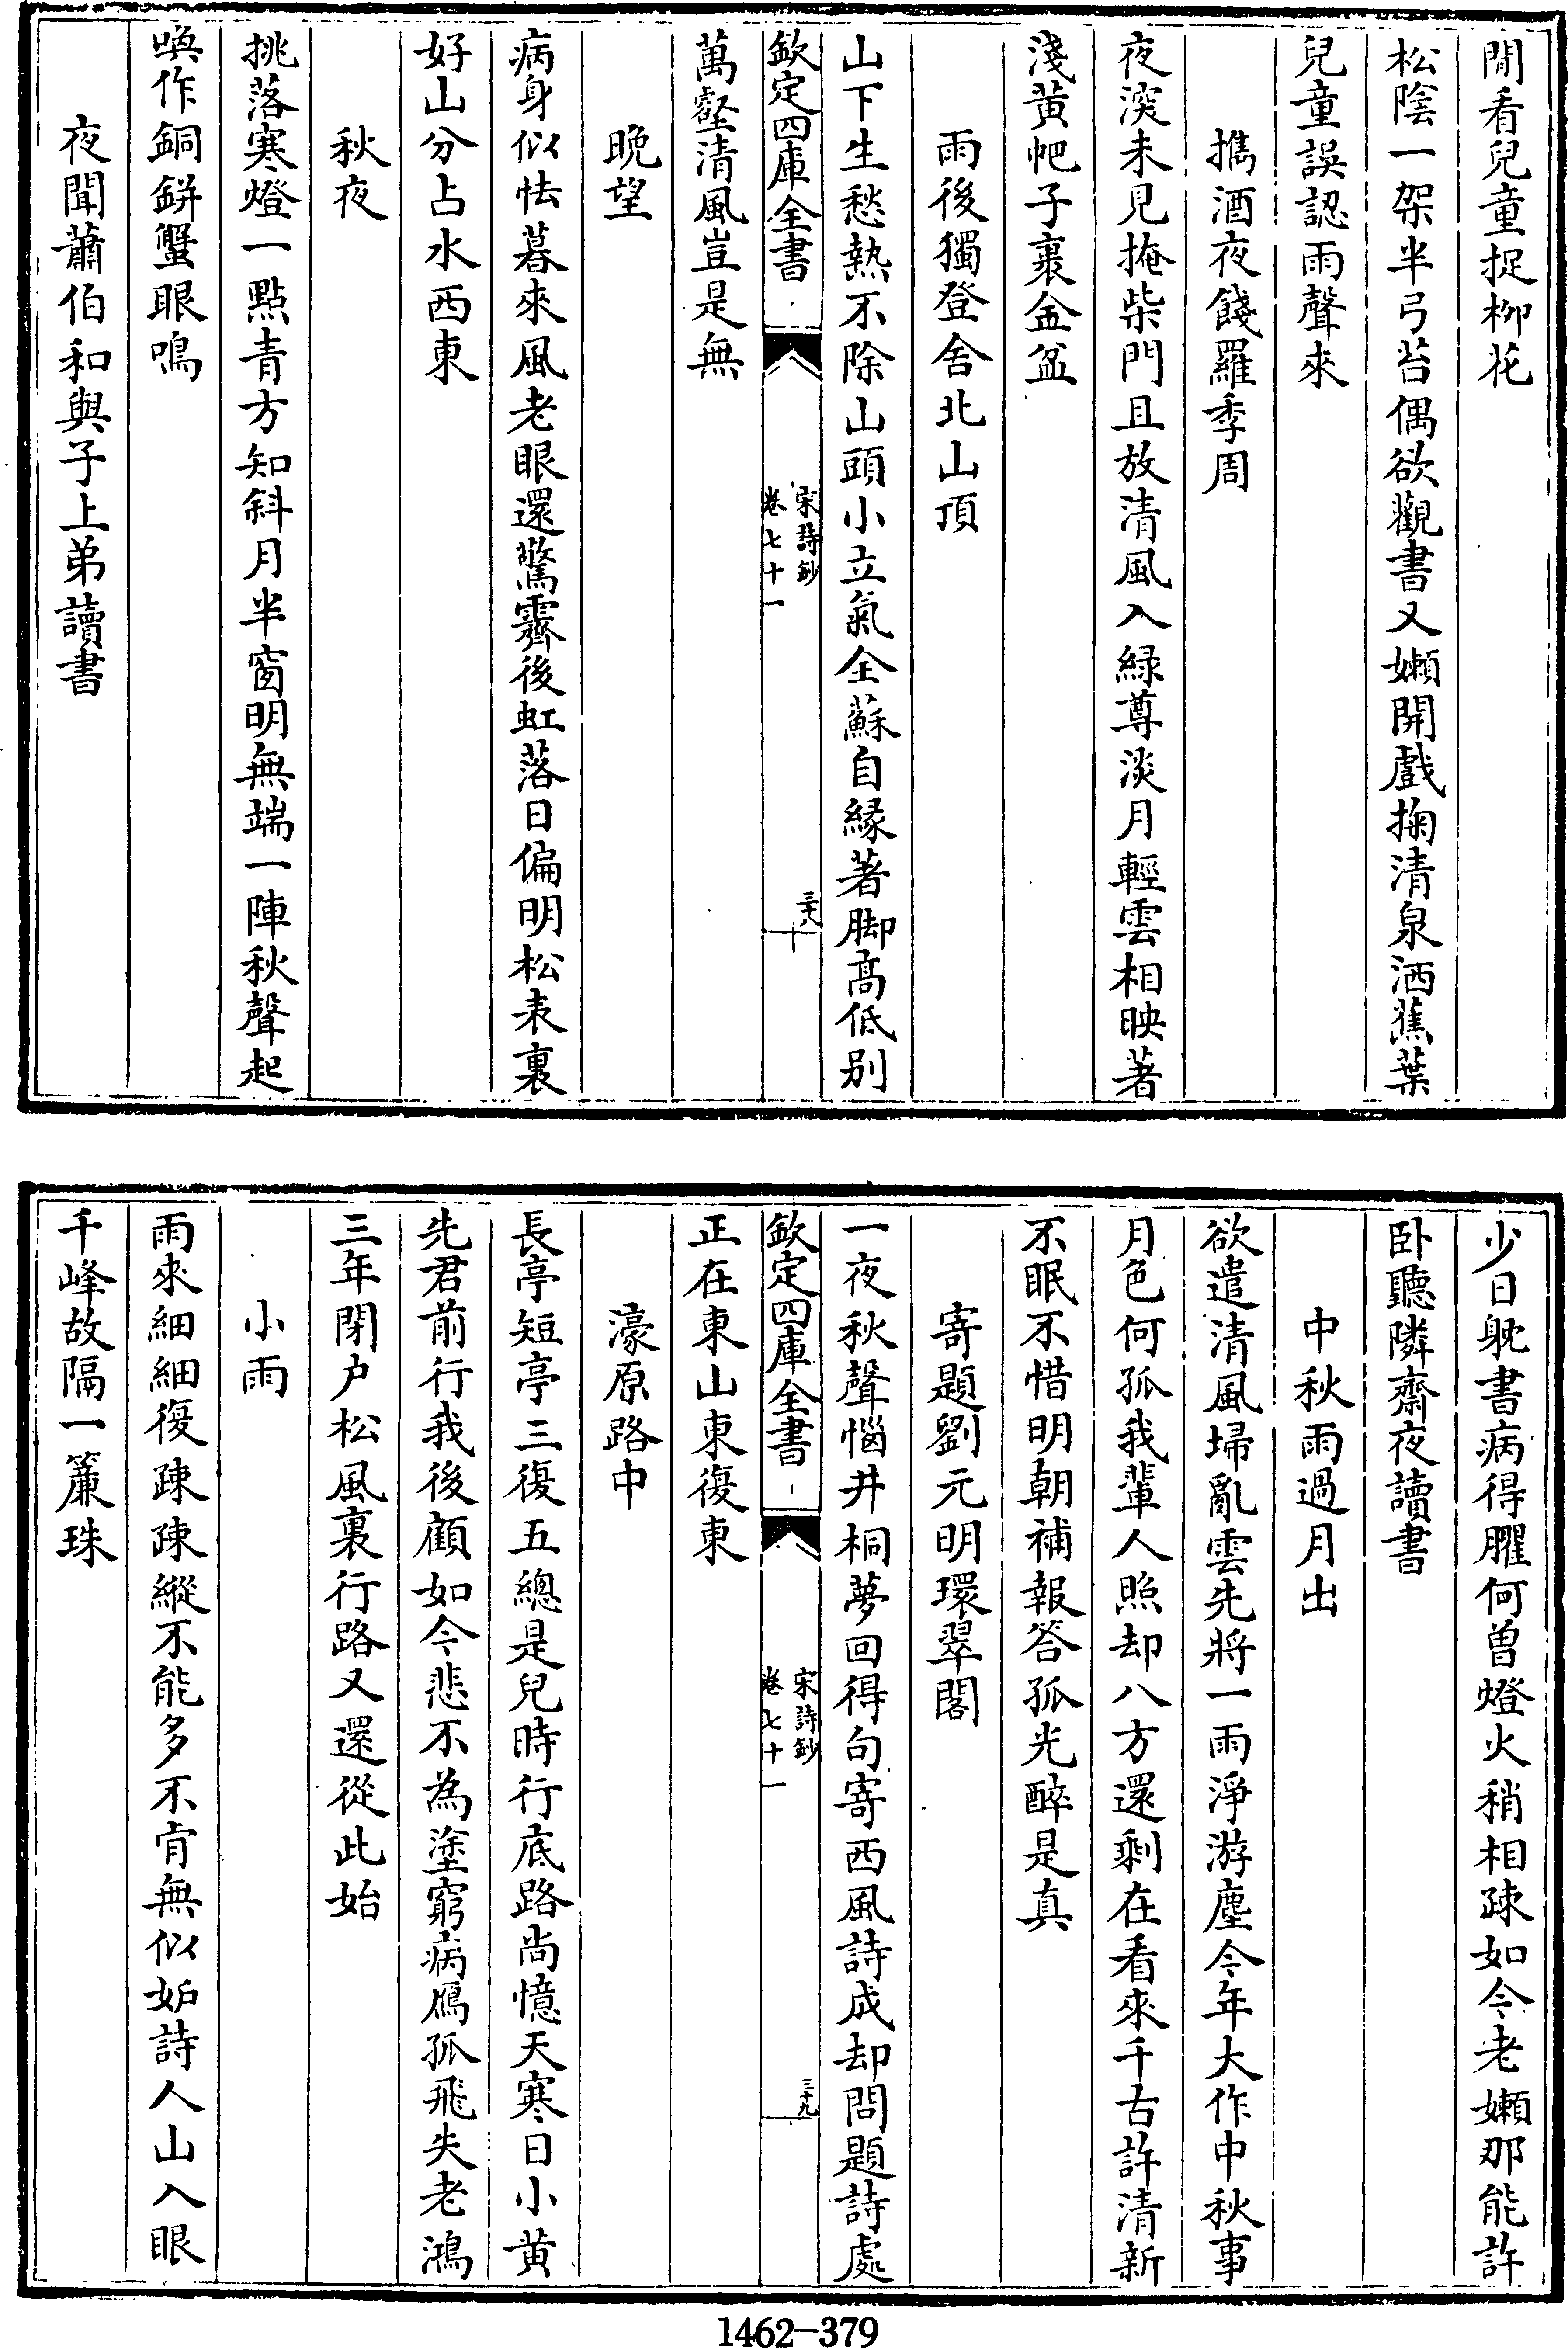 閒看兒童捉栁花
松陰一架半弓苔偶欲觀書又嬾開戲掬清泉洒蕉葉
兒童誤認雨聲來
携酒夜餞羅季周
夜深未見掩柴門且放清風入緑尊淡月輕雲相映著
淺黄帊子裹金盆
雨後獨登舍北山頂
山下生愁熱不除山頭小立氣全蘇自縁著脚髙低别
欽定四庫全書
宋詩鈔
卷七十一
三十八
萬壑清風豈是無
晩望
病身似怯暮來風老眼還驚霽後虹落日偏明松表裏
好山分占水西東
秋夜
挑落寒燈一點青方知斜月半窗明無端一陣秋聲起
喚作銅鉼蟹眼鳴
夜聞蕭伯和與子上弟讀書
少日躭書病得臞何曽燈火稍相疎如今老嬾那能許
卧聽隣齋夜讀書
中秋雨過月出
欲遣清風埽亂雲先將一雨淨游塵今年大作中秋事
月色何孤我輩人照却八方還剩在看來千古許清新
不眠不惜明朝補報答孤光醉是真
寄題劉元明環翠閣
一夜秋聲惱井桐夢回得句寄西風詩成却問題詩處
欽定四庫全書
宋詩鈔
卷七十一
三十九
正在東山東復東
濠原路中
長亭短亭三復五總是兒時行底路尚憶天寒日小黄
先君前行我後顧如今悲不為塗窮病鴈孤飛失老鴻
三年閉户松風裏行路又還從此始
小雨
雨來細細復疎疎縱不能多不肯無似妬詩人山入眼
千峰故隔一簾珠
1462-379